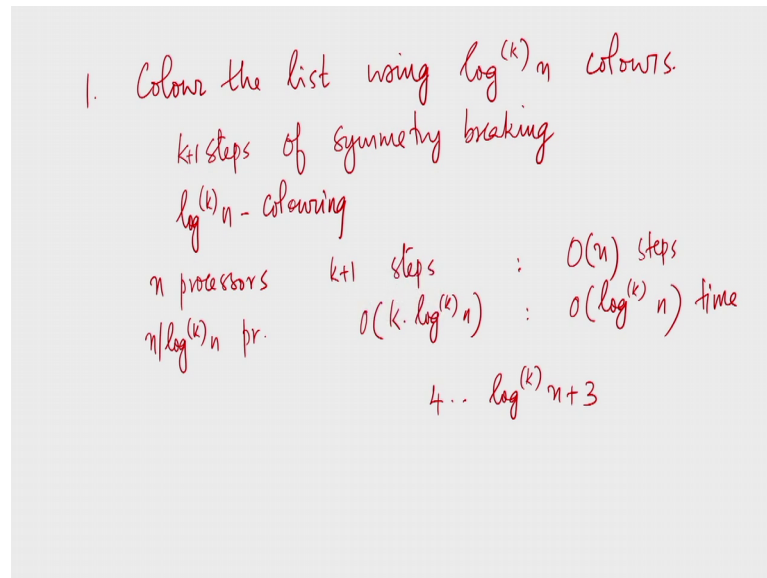 1. Colour the list using log^(k) n colours.
k+1 steps of symmetry breaking
log^(k) n - Colouring
n processors k+1 steps : O(n) steps
n/log^(k) n pr. O(k. log^(k) n) : O(log^(k) n) time
4.. log^(k) n+3